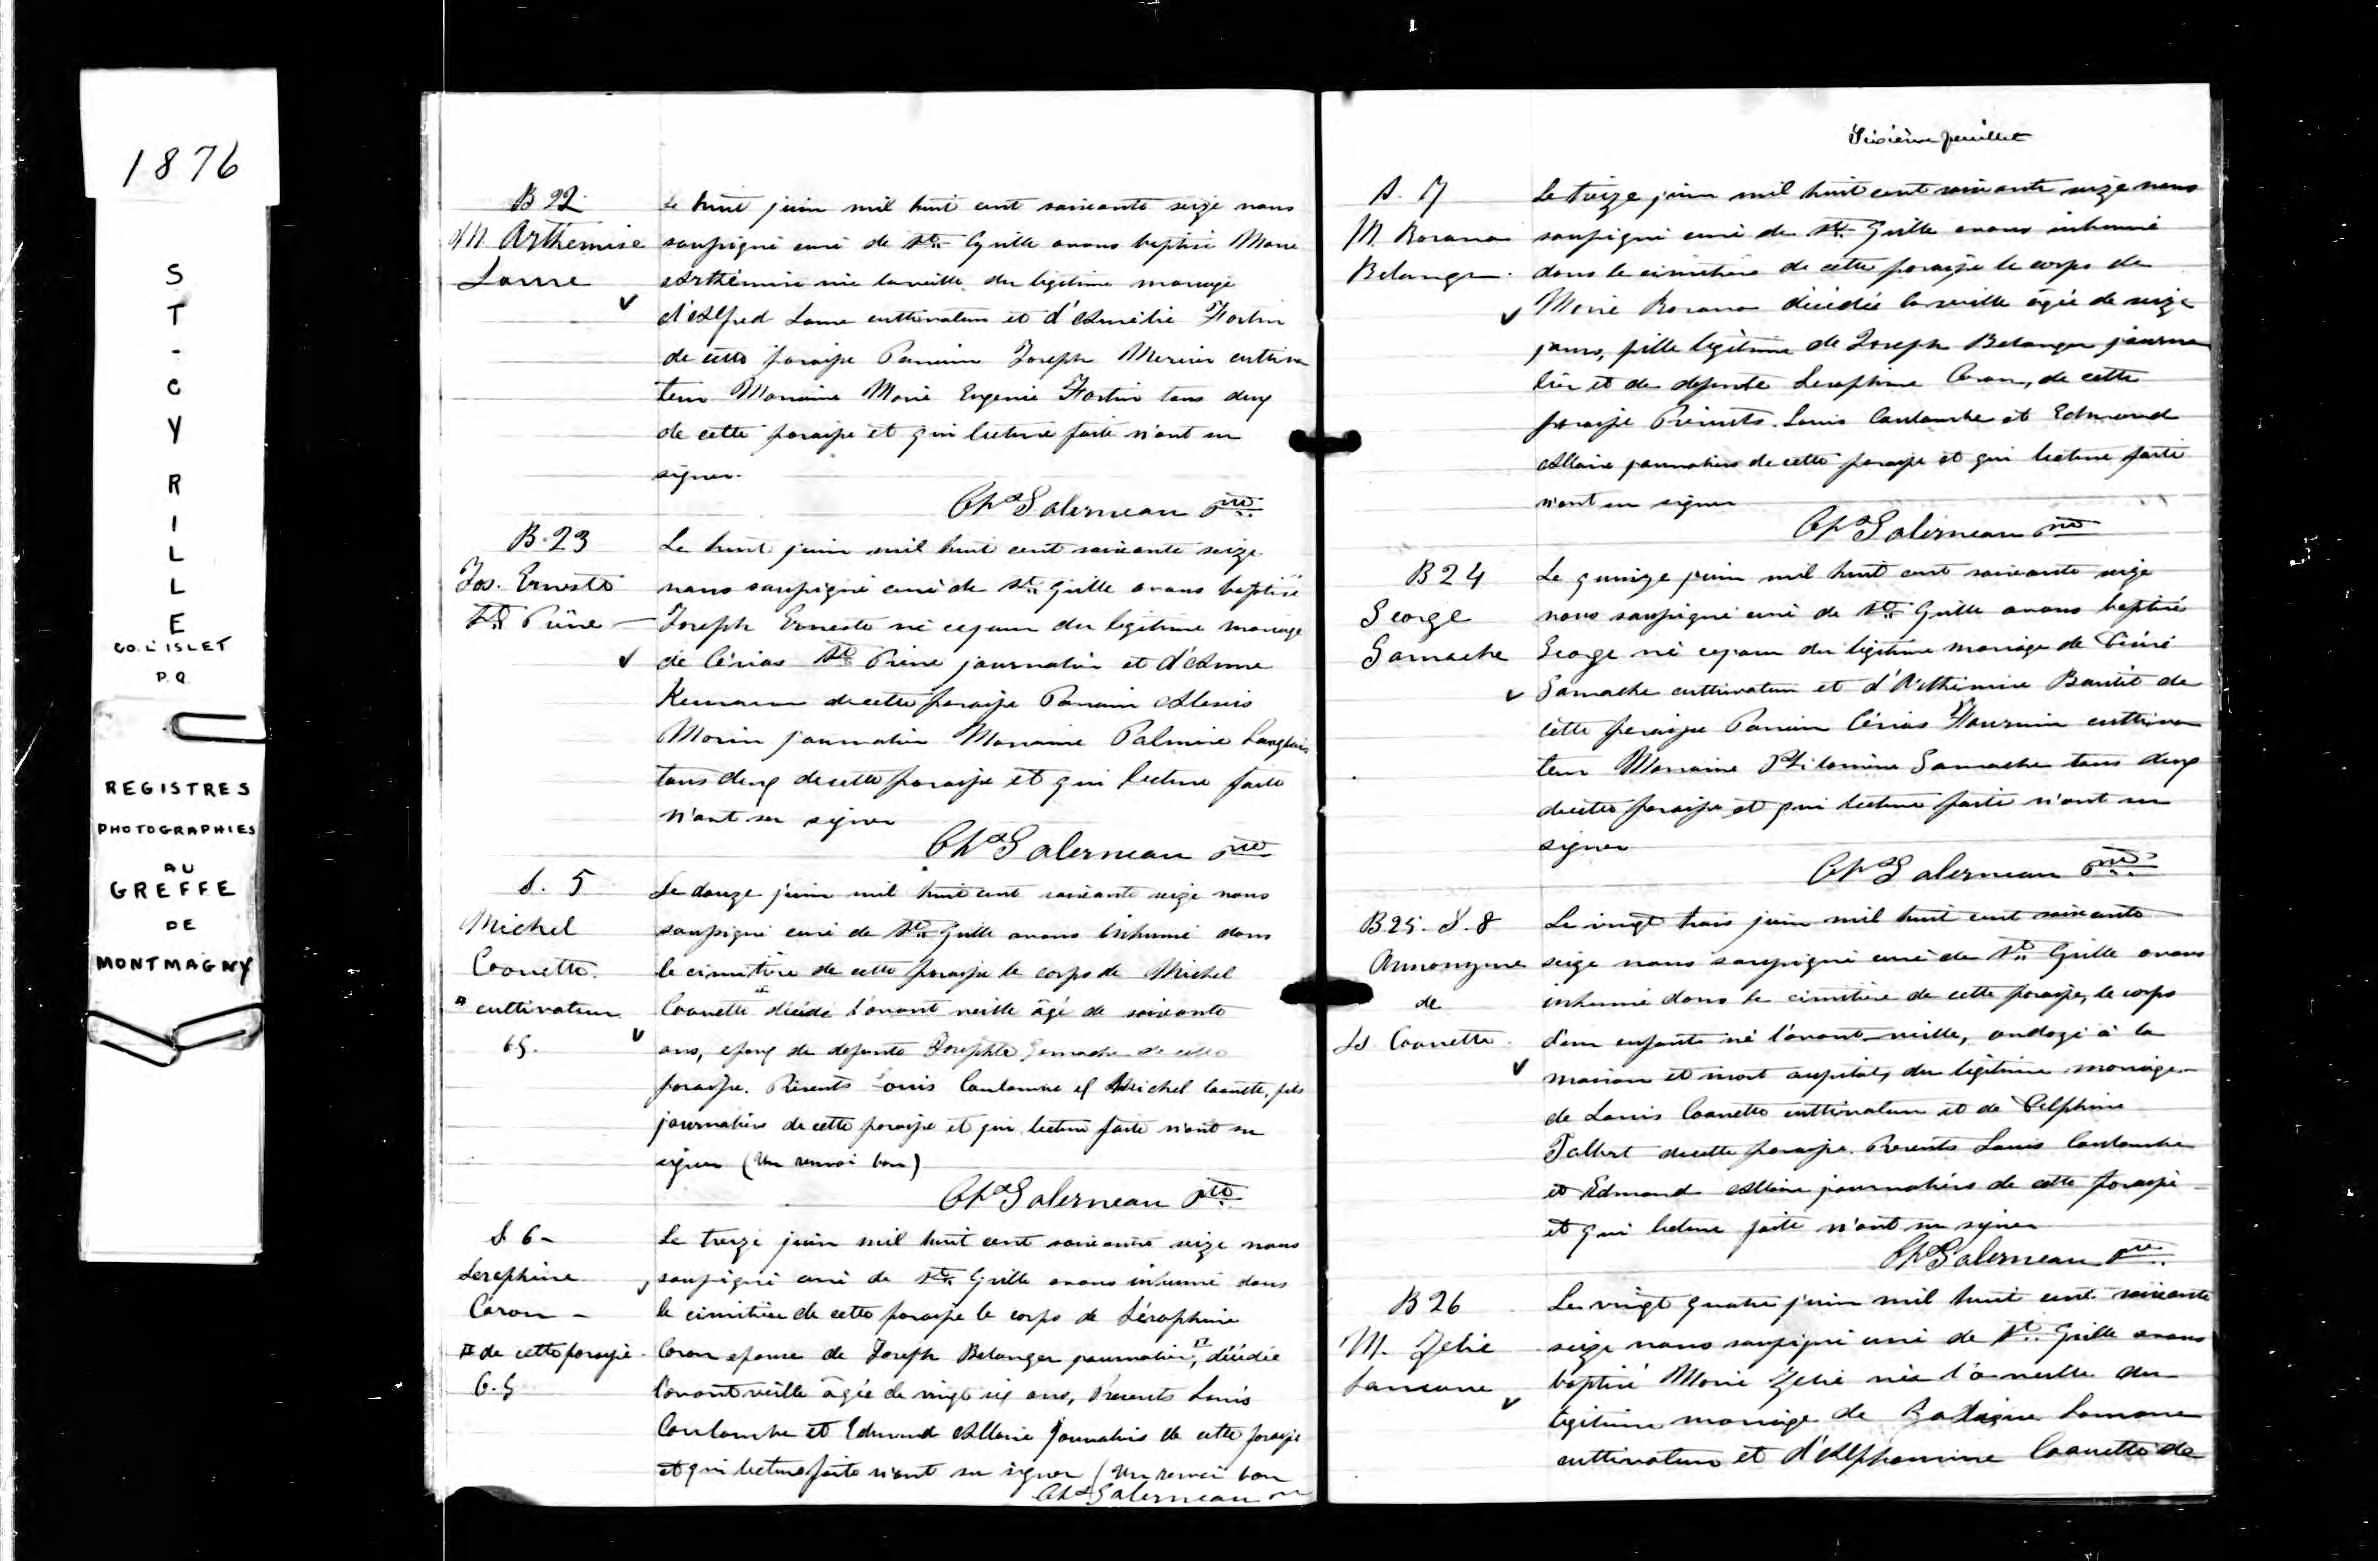 1876
ST-CYRILLE
CO. L'ISLET
P.Q.
REGISTRES
PHOTOGRAPHIES
AU
GREFFE
DE
MONTMAGNY
B 22
M. Arthemise
Lame
Le huit juin mil huit cent soixante seize nous
soussigné curé de St. Cyrille avons baptisé Marie
Arthémise née la veille du légitime mariage
d'Alfred Lame cultivateur et d'Amélie Fortin
de cette paroisse Parrain Joseph Mercier cultiva
teur Marraine Marie Eugenie Fortin tous deux
de cette paroisse et qui lecture faite n'ont su
signer.
Chs Galerneau Ptre
B. 23
Jos. Ernest
St Pierre
Le huit juin mil huit cent soixante seize
nous soussigné curé de St. Cyrille avons baptisé
Joseph Ernest né ce jour du légitime mariage
de Cérias St. Pierre journalier et d'Anne
de cette paroisse Parrain Alexis
Morin journalier Marraine Palmire Langlais
tous deux de cette paroisse et qui lecture faite
n'ont su signer
Chs Galerneau Ptre
S. 5
Michel
Caouette
cultivateur
C.G.
Le douze juin mil huit cent soixante seize nous
soussigné curé de St. Cyrille avons inhumé dans
le cimitère de cette paroisse le corps de Michel
Caouette décédé l'avant veille âgé de soixante
ans, epoux de defunte Josephte Gamache de cette
paroisse. Présents Louis Coulombe et Michel Caouette, fils
journaliers de cette paroisse et qui lecture faite n'ont su
signer (Un renvoi bon)
Chs Galerneau Ptre
S 6
Seraphine
Caron
de cette paroisse
C.G
Le treize juin mil huit cent soixante seize nous
soussigné curé de St. Cyrille avons inhumé dans
le cimitière de cette paroisse le corps de Séraphine
Caron epouse de Joseph Belanger journalier, décédée
l'avant veille âgée de vingt six ans, Présents Louis
Coulombe et Edmond Allaire journaliers de cette paroisse
et qui lecture faite n'ont su signer (Un renvoi bon
Chs Galerneau
Sixième feuillet
S. 7
M. Rosanna
Belanger
Le treize juin mil huit cent soixante seize nous
soussigné curé de St. Cyrille avons inhumé
dans le cimitière de cette paroisse le corps de
Marie Rosanna décédée la veille âgée de seize
jours, fille légitime de Joseph Belanger journa
lier et de defunte Seraphine Caron, de cette
paroisse Présents Louis Coulombe et Edmond
Allaire journaliers de cette paroisse et qui lecture faite
n'ont su signer
Chs Galerneau Ptre
B 24
George
Gamache
Le quinze juin mil huit cent soixante seize
nous soussigné curé de St. Cyrille avons baptisé
George né ce jour du légitime mariage de Désiré
Gamache cultivateur et d'Arthémise Bautet de
cette paroisse Parrain Cérias Fournier cultiva
teur Marraine Philomène Gamache tous deux
de cette paroisse et qui lecture faite n'ont su
signer
Chs Galerneau Ptre
B 25 - S. 8
Annonyme
de
Ls Caouette
Le vingt trois juin mil huit cent soixante
seize nous soussigné curé de St. Cyrille avons
inhumé dans le cimitière de cette paroisse, le corps
d'un enfant né l'avant-veille, ondoyé à la
maison et mort aussitôt, du légitime mariage
de Louis Caouette cultivateur et de Delphine
Talbot de cette paroisse. Presents Louis Coulombe
et Edmond Allaire journaliers de cette paroisse
et qui lecture faite n'ont su signer
Chs Galerneau Ptre
B 26
M. Zelie
Lamarre
Le vingt quatre juin mil huit cent soixante
seize nous soussigné curé de St. Cyrille avons
baptisé Marie Zelie née la veille du
légitime mariage de Lamarre
cultivateur et d'Alphonsine Caouette de